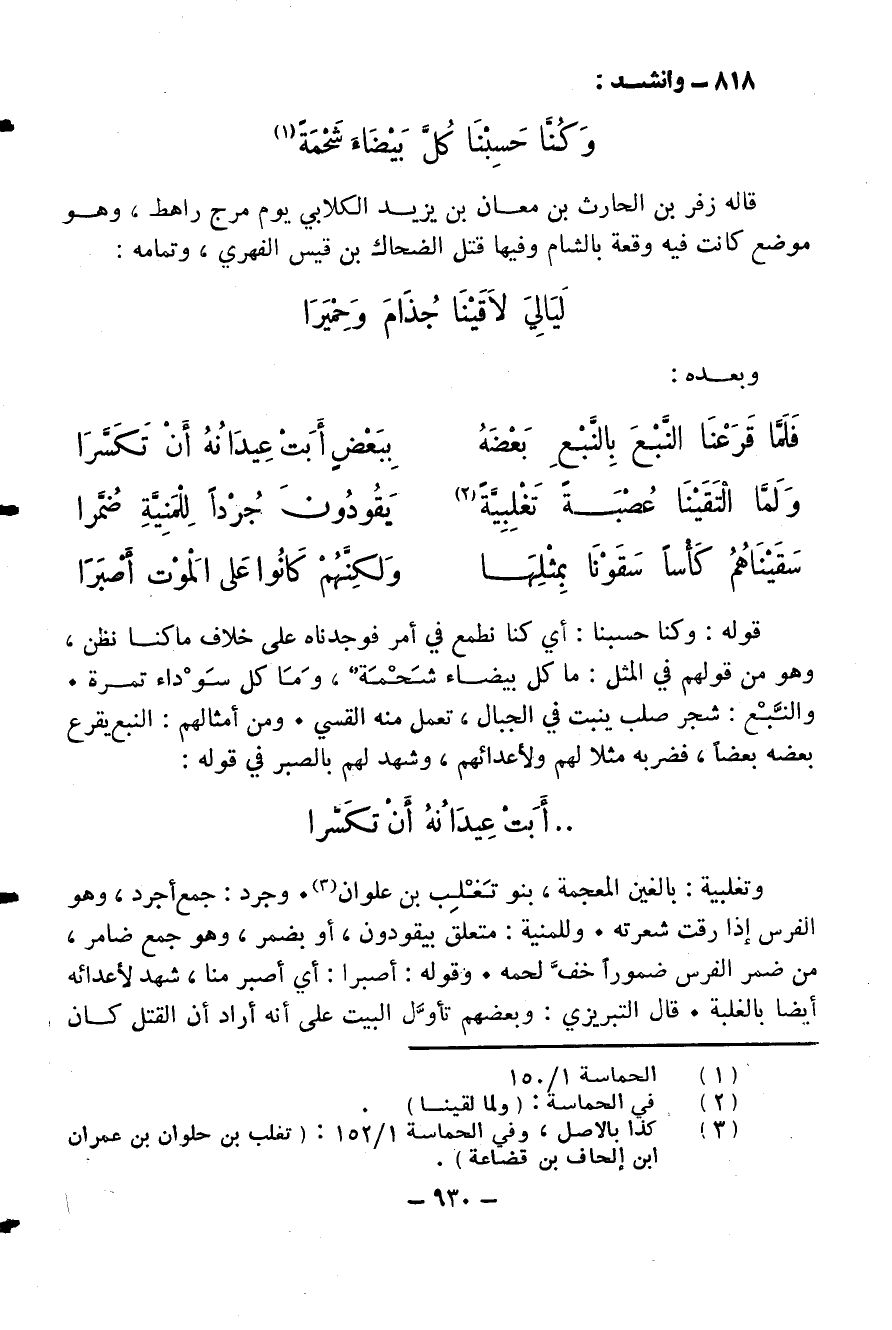 ٨١٨ ــ وانشــد :
وَكُنَّا حَسِبْنَا كُلَّ بَيْضَاءَ شَحْمَةً(١)
قاله زفر بن الحارث بن معــان بن يزيــد الكلابي يوم مرج راهط ، وهــو
موضع كانت فيه وقعة بالشام وفيها قتل الضحاك بن قيس الفهري ، وتمامه :
لَيَالِيَ لاَقَيْنَا جُذَامَ وَحِمْيَرَا
وبعــده :
فَلَمَّا قَرَعْنَا النَّبْعَ بِالنَّبْعِ بَعْضَهُ بِبَعْضٍ أَبَتْ عِيدَانُهُ أَنْ تَكَسَّرَا
وَلَمَّا الْتَقَيْنَا عُصْبَــةً تَغْلِبِيَّةً(٢) يَقُودُونَ جُرْداً لِلْمَنِيَّةِ ضُمَّرا
سَقَيْنَاهُمُ كَأْساً سَقَوْنَا بِمِثْلِهَــا وَلكِنَّهُمْ كَانُوا عَلى الْمَوْتِ أَصْبَرَا
قوله : وكنا حسبنا : أي كنا نطمع في أمر فوجدناه على خلاف ماكنــا نظن ،
وهو من قولهم في المثل : ما كل بيضــاء شَحْمَة" ، وَمَا كل سَوْداء تمــرة •
والنَّبْع : شجر صلب ينبت في الجبال ، تعمل منه القسي • ومن أمثالهم : النبع يقرع
بعضه بعضاً ، فضربه مثلا لهم ولأعدائهم ، وشهد لهم بالصبر في قوله :
.. أَبَتْ عِيدَانُهُ أَنْ تكَسَّرا
وتغلبية : بالغين المعجمة ، بنو تَغْلِب بن علوان(٣)• وجرد : جمع أجرد ، وهو
الفرس إذا رقت شعرته • وللمنية : متعلق بيقودون ، أو بضمر ، وهو جمع ضامر ،
من ضمر الفرس ضموراً خفَّ لحمه • وقوله : أصبرا : أي أصبر منا ، شهد لأعدائه
أيضا بالغلبة • قال التبريزي : وبعضهم تأوَّل البيت على أنه أراد أن القتل كــان
(١) الحماسة ١/١٥٠
(٢) في الحماسة : ( ولما لقينــا ) .
(٣) كذا بالاصل ، وفي الحماسة ١/١٥٢ : ( تغلب بن حلوان بن عمران
ابن إلحاف بن قضاعة ) .
ــ ٩٣٠ ــ